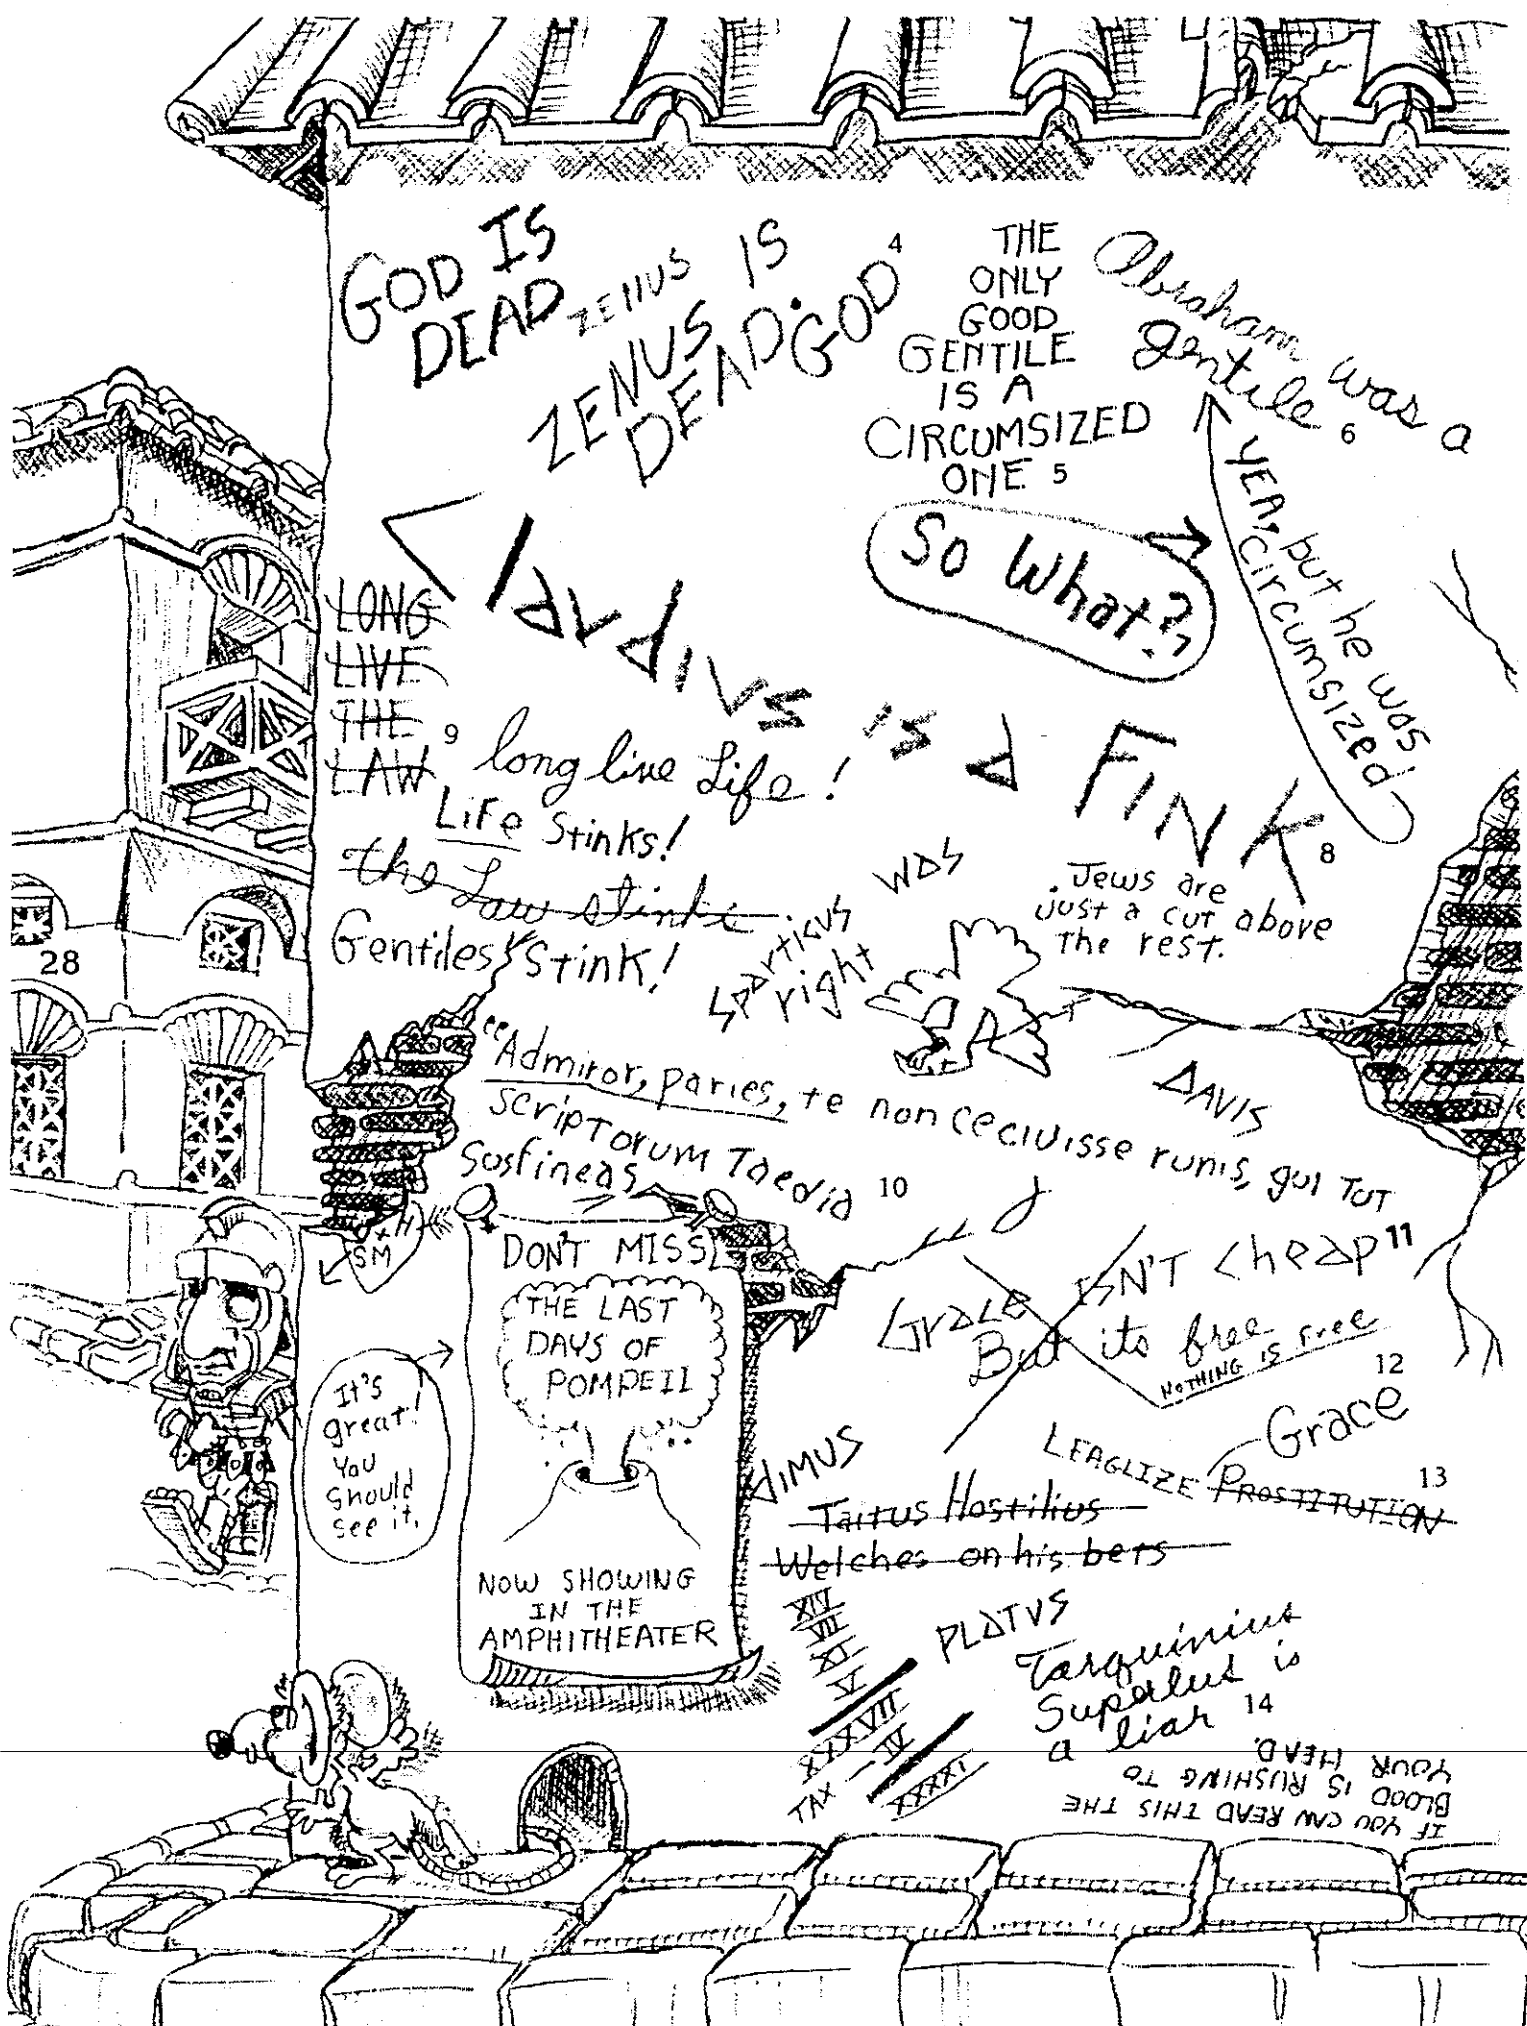 GOD IS
DEAD
ZEUS
ZENUS IS
DEAD. GOD 4
THE
ONLY
GOOD
GENTILE
IS A
CIRCUMSIZED
ONE 5
Abraham was a
gentile 6
YEA, but he was
circumsized
So What?,
Clavdivs is a FINK 8
LONG
LIVE
THE 9
LAW
long live Life!
LiFe Stinks!
the Law stinks
Gentiles Stink!
sparticus was
right
Jews are
just a cut above
The rest.
28
"Admiror, paries, te non cecivisse runis, gui TOT
scripTorum Taedia 10
Sosfineas
DAVIS
SM
DON'T MISS
THE LAST
DAYS OF
POMPEII
NOW SHOWING
IN THE
AMPHITHEATER
It's
great!
You
Should
see it.
Grace ISN'T cheap 11
But its free
NOTHING IS free
12
Grace
LEAGLIZE PROSTITUTION 13
DIMUS
Tartus Hostilius
Welches on his bets
XIV
VII
XI
V
XXXVII
TAX -IV
XXXXI
PLATVS
Tarquinius
Superlus is
a liar 14
IF YOU CAN READ THIS THE
BLOOD IS RUSHING TO
YOUR HEAD.